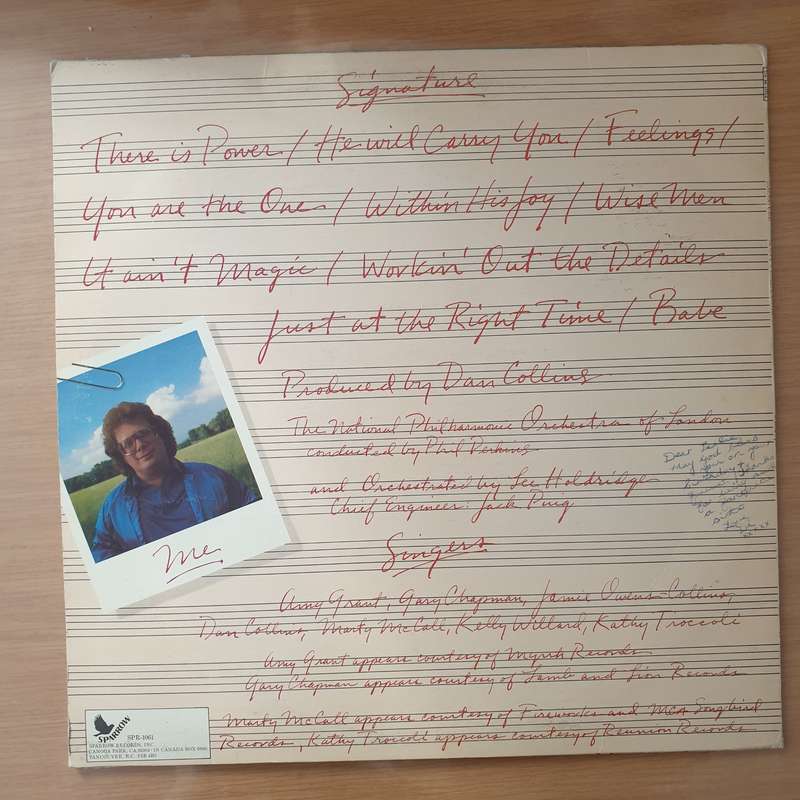 Signature
There is Power / He will Carry You / Feelings /
You are the One / Within His Joy / Wise Men
It ain't Magic / Workin' Out the Details
Just at the Right Time / Babe
Produced by Dan Collins
The National Philharmonic Orchestra of London
conducted by Phil Perkins
and Orchestrated by Lee Holdridge
Chief Engineer: Jack Puig
Me
Singers
Amy Grant, Gary Chapman, Jamie Owens-Collins,
Dan Collins, Marty McCall, Kelly Willard, Kathy Troccoli
Amy Grant appears courtesy of Myrrh Records
Gary Chapman appears courtesy of Lamb and Lion Records
Marty McCall appears courtesy of Fireworks and MCA Songbird
Records, Kathy Troccoli appears courtesy of Reunion Records
SPARROW
SPR-1061
SPARROW RECORDS, INC.
CANOGA PARK, CA
VANCOUVER, B.C.
Dear
may god
you